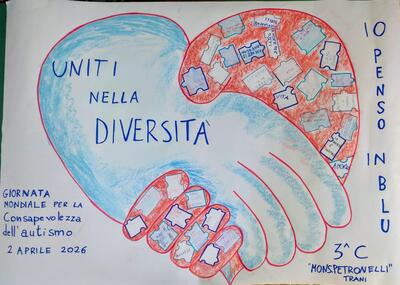 UNITI
NELLA
DIVERSITÀ
IO PENSO IN BLU
GIORNATA
MONDIALE PER LA
Consapevolezza
dell'autismo
2 APRILE 2026
3^C
"MONS.PETRONELLI"
TRANI